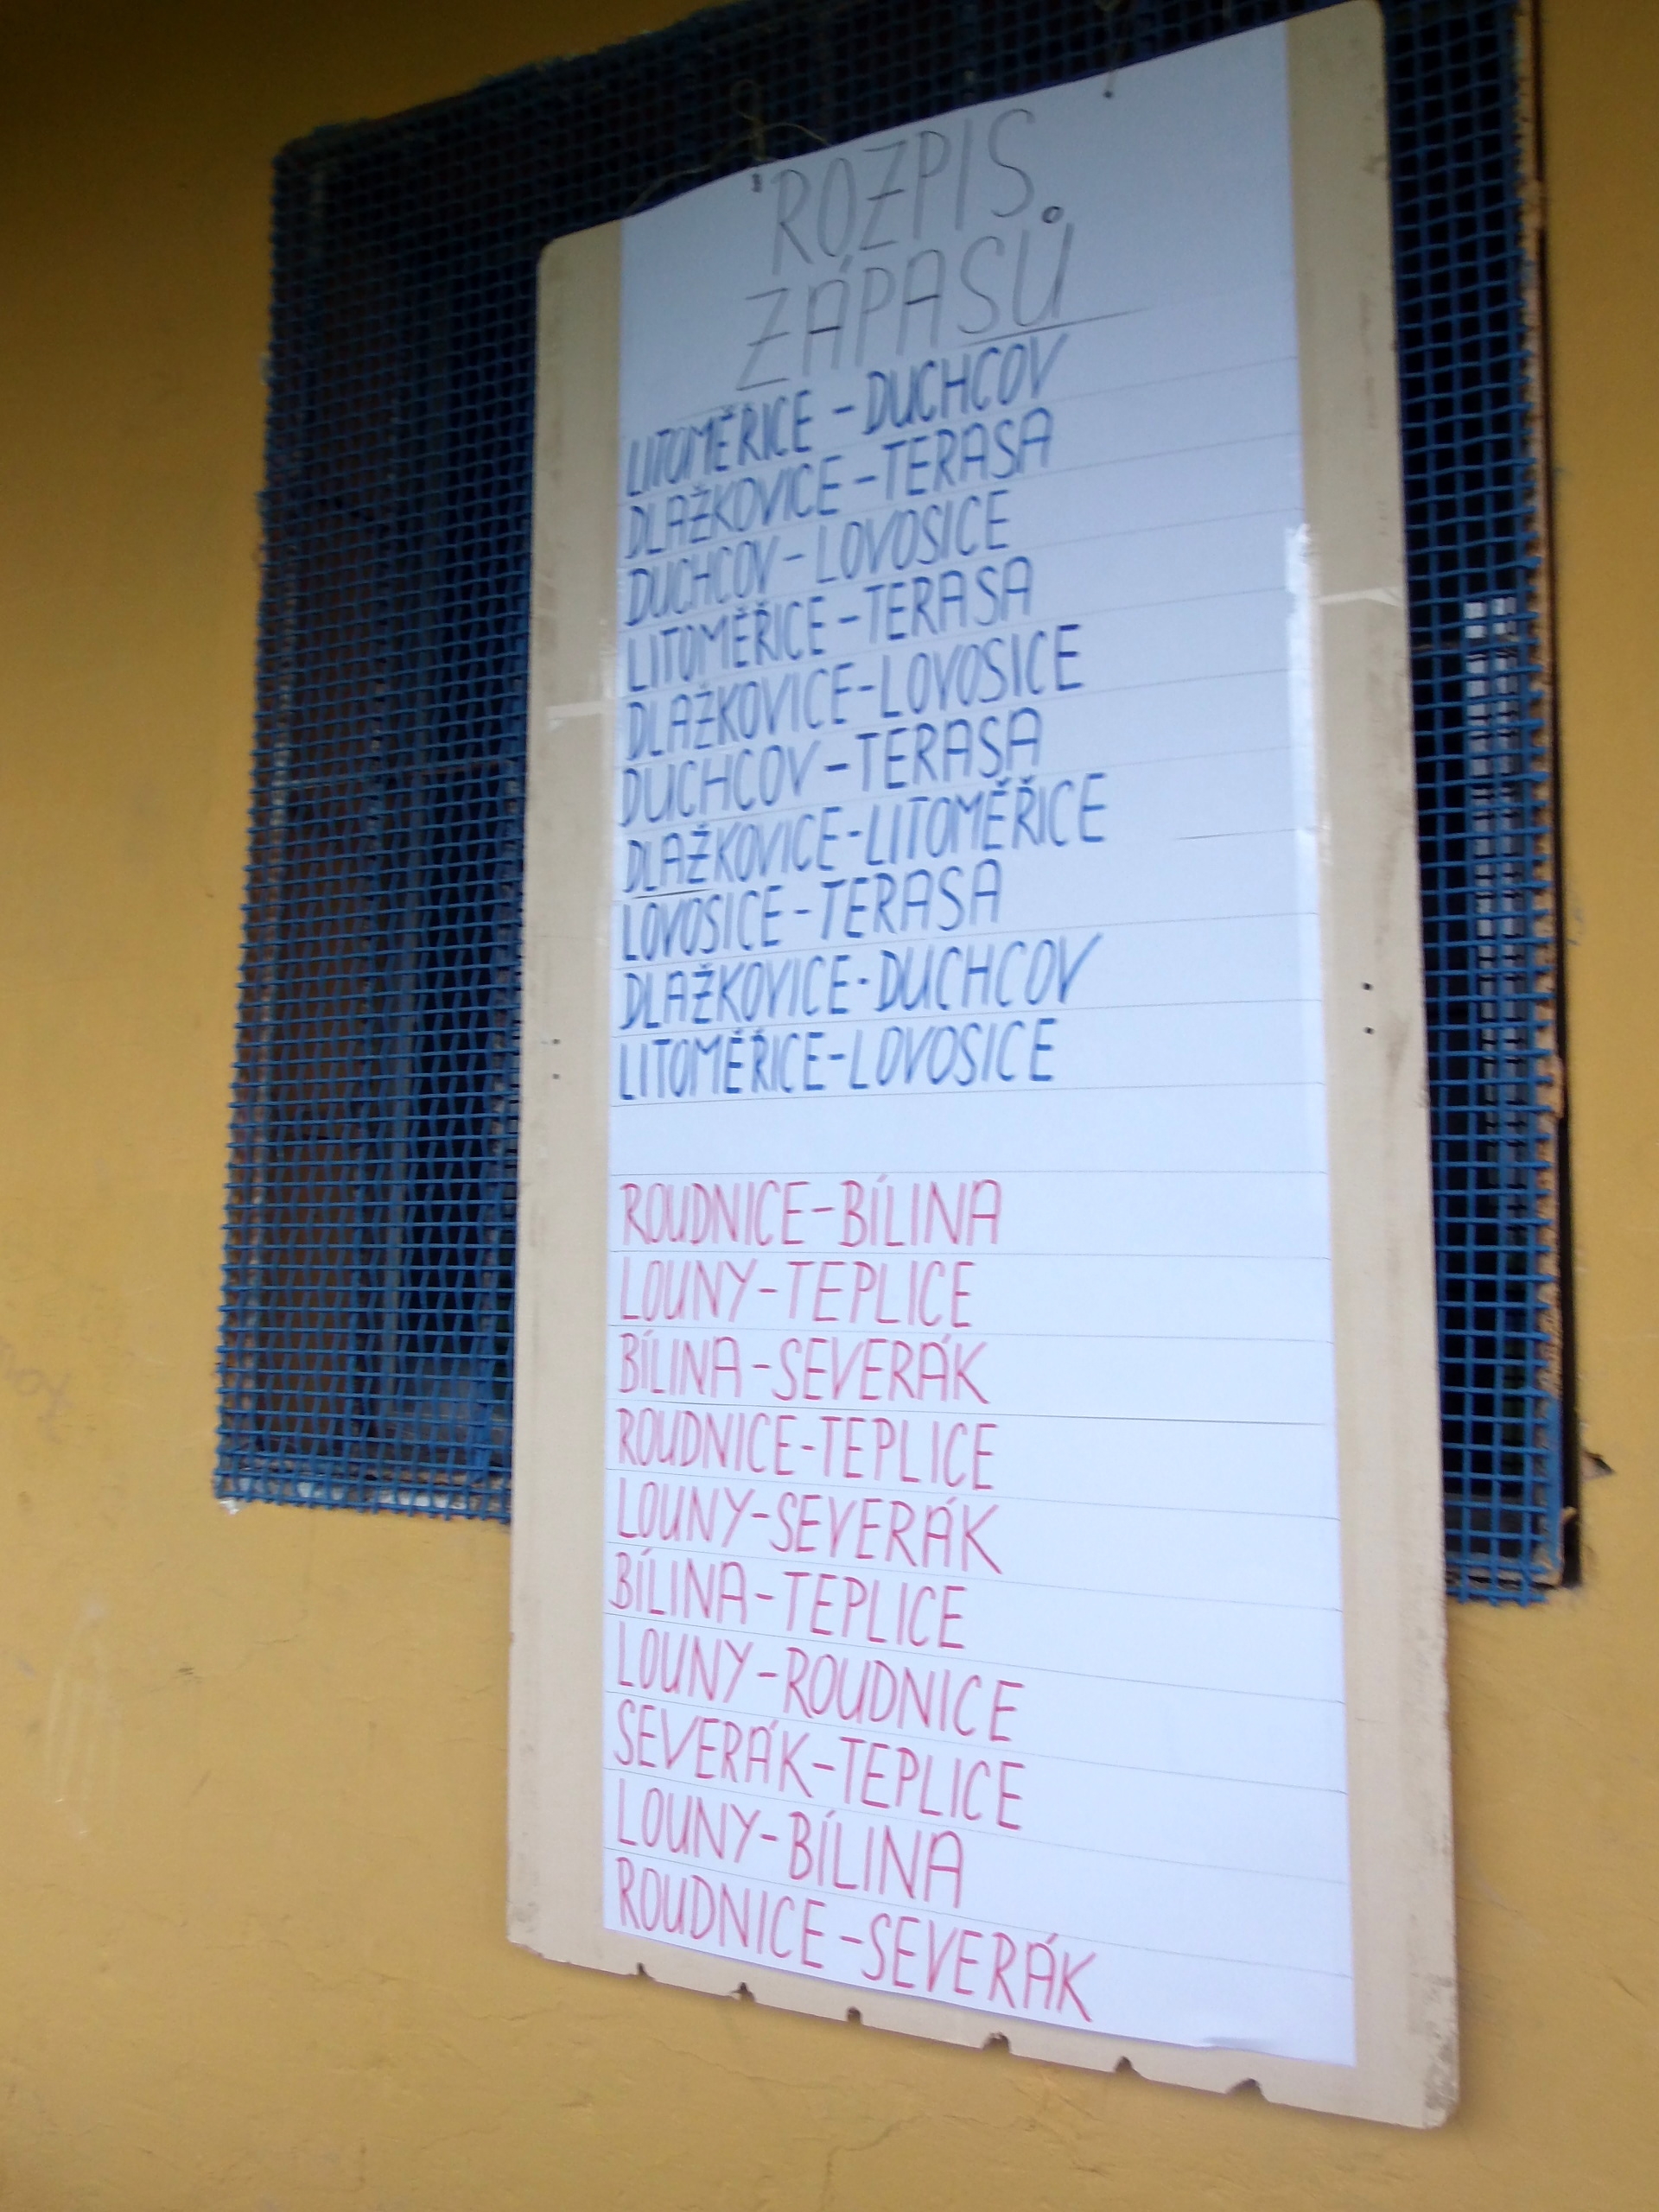 ROZPIS
ZÁPASŮ
LITOMĚŘICE - DUCHCOV
DLAŽKOVICE - TERASA
DUCHCOV - LOVOSICE
LITOMĚŘICE - TERASA
DLAŽKOVICE - LOVOSICE
DUCHCOV - TERASA
DLAŽKOVICE - LITOMĚŘICE
LOVOSICE - TERASA
DLAŽKOVICE - DUCHCOV
LITOMĚŘICE - LOVOSICE
ROUDNICE - BÍLINA
LOUNY - TEPLICE
BÍLINA - SEVERÁK
ROUDNICE - TEPLICE
LOUNY - SEVERÁK
BÍLINA - TEPLICE
LOUNY - ROUDNICE
SEVERÁK - TEPLICE
LOUNY - BÍLINA
ROUDNICE - SEVERÁK